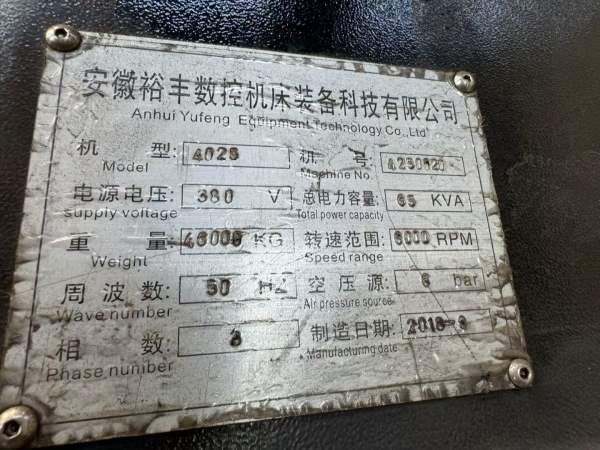 安徽裕丰数控机床装备科技有限公司
Anhui Yufeng Equipment Technology Co.,Ltd
机 型: 4028 机 号:
Model Machine No.
电源电压: 380 V 总电力容量: 65 KVA
supply voltage Total power capacity
重 量: 46000 KG 转速范围: 6000 RPM
Weight Speed range
周波数: 50 HZ 空压源: 6 bar
Wave number Air pressure source
相 数: 3 制造日期:
Phase number Manufacturing date